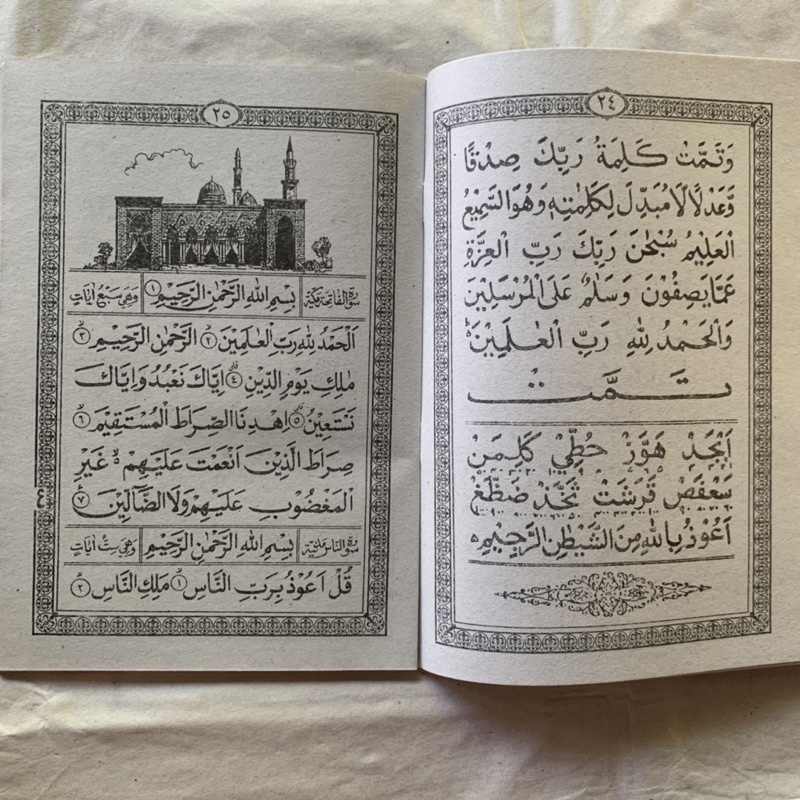 ٢٤
وَتَمَّتْ كَلِمَةُ رَبِّكَ صِدْقًا
وَعَدْلًا لَا مُبَدِّلَ لِكَلِمٰتِهٖ وَهُوَ السَّمِيْعُ
الْعَلِيْمُ سُبْحٰنَ رَبِّكَ رَبِّ الْعِزَّةِ
عَمَّا يَصِفُوْنَ وَسَلٰمٌ عَلَى الْمُرْسَلِيْنَ
وَالْحَمْدُ لِلّٰهِ رَبِّ الْعٰلَمِيْنَ
تَمَّتْ
اَبْجَدْ هَوَّزْ حُطِّيْ كَلِمَنْ
سَعْفَصْ قَرَشَتْ ثَخَّذْ ضَظَّغْ
اَعُوْذُ بِاللّٰهِ مِنَ الشَّيْطٰنِ الرَّجِيْمِ ە
٢٥
سورة الفاتحة مكية بِسْمِ اللّٰهِ الرَّحْمٰنِ الرَّحِيْمِ ١ وَهِيَ سَبْعُ اٰيَاتٍ
اَلْحَمْدُ لِلّٰهِ رَبِّ الْعٰلَمِيْنَ ٢ الرَّحْمٰنِ الرَّحِيْمِ ٣
مٰلِكِ يَوْمِ الدِّيْنِ ٤ اِيَّاكَ نَعْبُدُ وَاِيَّاكَ
نَسْتَعِيْنُ ٥ اِهْدِنَا الصِّرَاطَ الْمُسْتَقِيْمَ ٦
صِرَاطَ الَّذِيْنَ اَنْعَمْتَ عَلَيْهِمْ غَيْرِ
الْمَغْضُوْبِ عَلَيْهِمْ وَلَا الضَّآلِّيْنَ ٧
سورة الناس مدنية بِسْمِ اللّٰهِ الرَّحْمٰنِ الرَّحِيْمِ وَهِيَ سِتُّ اٰيَاتٍ
قُلْ اَعُوْذُ بِرَبِّ النَّاسِ ١ مَلِكِ النَّاسِ ٢